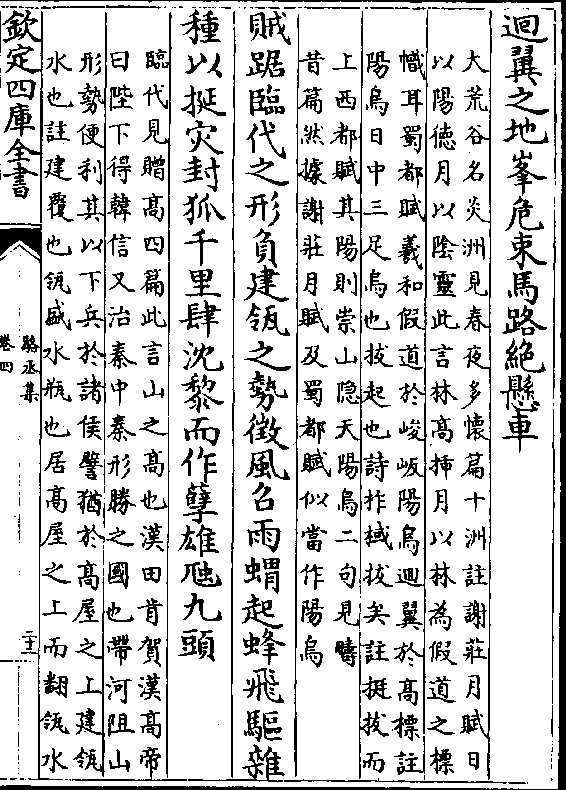 迴翼之地峯危束馬路絶懸車
大荒谷名炎洲見春夜多懷篇十洲註謝莊月賦日
以陽德月以陰靈此言林髙揷月以林為假道之標
幟耳蜀都賦羲和假道於峻岅陽烏迴翼於高標註
陽烏日中三足烏也拔起也詩柞棫拔矣註挺拔而
上西都賦其陽則崇山隠天陽烏二句見疇
昔篇然據謝莊月賦及蜀都賦似當作陽烏
賊踞臨代之形負建瓴之勢徴風召雨蝟起蜂飛驅雜
種以挻灾封狐千里肆沈黎而作孽雄虺九頭
臨代見贈髙四篇此言山之髙也漢田肯賀漢髙帝
曰陛下得韓信又治秦中秦形勝之國也帶河阻山
形勢便利其以下兵於諸侯譬猶於髙屋之上建瓴
水也註建覆也瓴盛水瓶也居髙屋之上而翻瓴水
欽定四庫全書
駱丞集
卷四
二十三